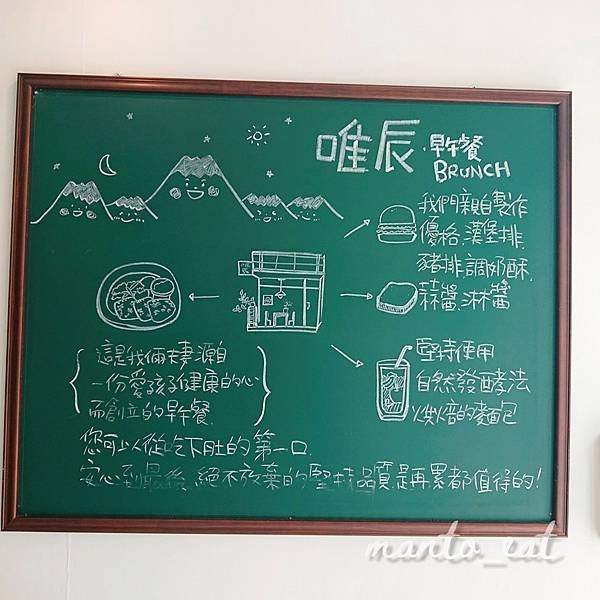 唯辰 早午餐
BRUNCH
我們親自製作
優格.漢堡排.
豬排.調奶酥.
蒜醬.淋醬
堅持使用
自然發酵法
火烘焙的麵包
這是我倆夫妻源自
一份愛孩子健康的心
而創立的早午餐.
您可以從吃下肚的第一口.
安心到最後.絕不放棄的堅持品質是再累都值得的!
manto_eat